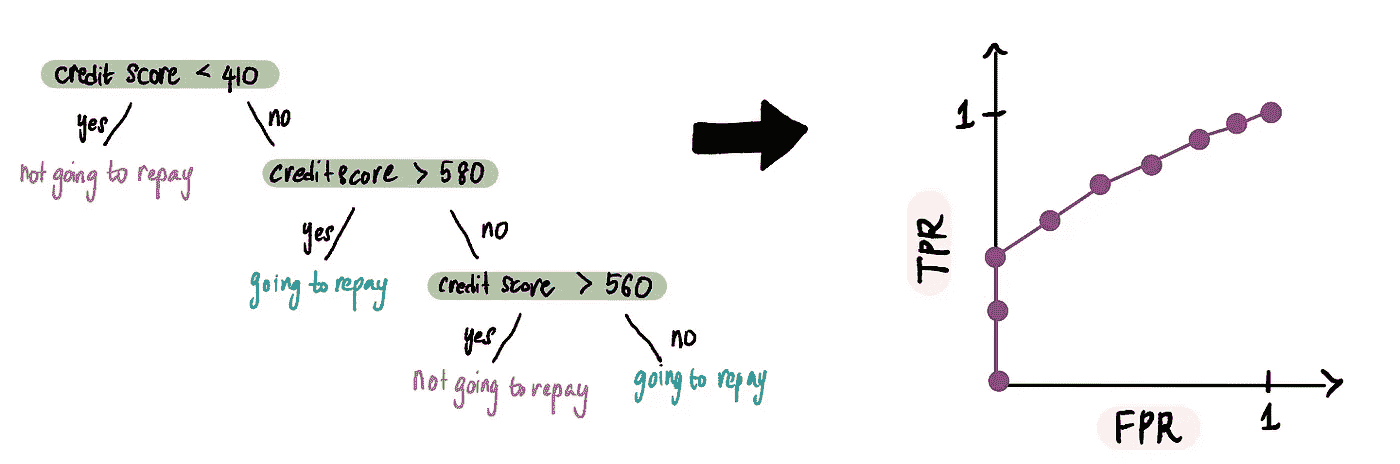 credit score < 410
yes
no
not going to repay
credit score > 580
yes
no
going to repay
credit score > 560
yes
no
not going to repay
going to repay
1
TPR
FPR
1